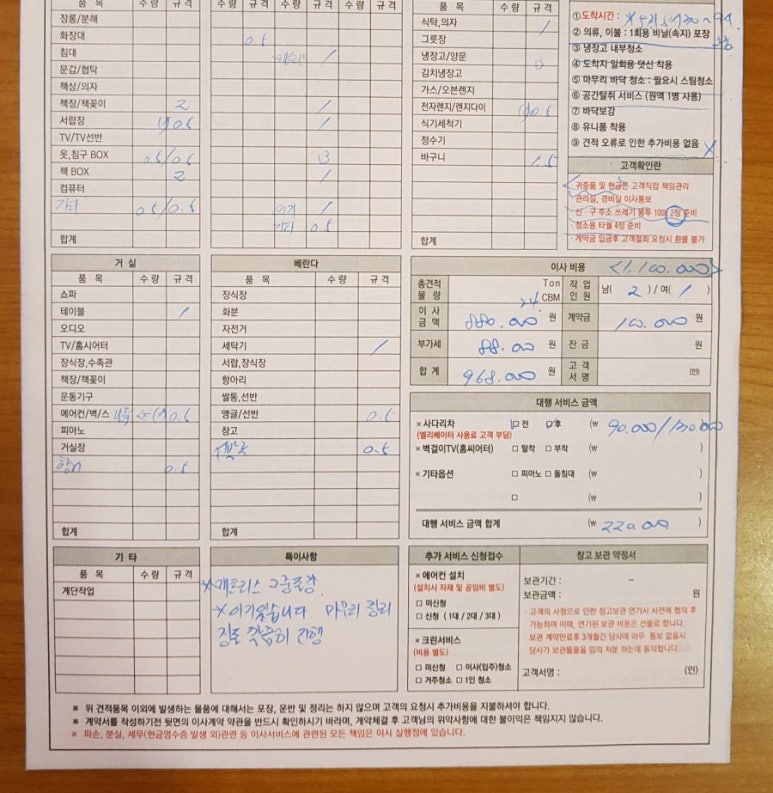 품 목 수량 규격
수량 규격 수량 규격
품 목 수량 규격
장롱/분해
화장대 0.5
침대 1
문갑/협탁
책상/의자
책장/책꽂이 2 1
서랍장 0.5 1
TV/TV선반
옷,침구 BOX 0.5/0.5 3
책 BOX 2 1
컴퓨터
기타 0.5/0.5 1
기타 0.5
합계
식탁,의자 1
그릇장
냉장고/양문 3
김치냉장고
가스/오븐렌지
전자렌지/렌지다이 0.5
식기세척기
정수기
바구니 1.5
합계
①도착시간 :
② 의류, 이불 : 1회용 비닐(속지) 포장
③ 냉장고 내부청소
④ 도착지 일회용 덧신 착용
⑤ 마무리 바닥 청소 : 필요시 스팀청소
⑥ 공간탈취 서비스 (원액 1병 사용)
⑦ 바닥보강
⑧ 유니폼 착용
⑨ 견적 오류로 인한 추가비용 없음
고객확인란
· 귀중품 및 현금은 고객직접 책임관리
· 관리실, 경비실 이사통보
· 신 · 구 주소 쓰레기 봉투 100ℓ 2장 준비
· 청소용 타월 4장 준비
· 계약금 입금후 고객철회 요청시 환불 불가
거 실
품 목 수량 규격
쇼파
테이블 1
오디오
TV/홈시어터
장식장,수족관
책장/책꽂이
운동기구
에어컨/벽/스 0.5
피아노
거실장
0.5
합계
베란다
품 목 수량 규격
장식장
화분
자전거
세탁기 1
서랍,장식장
항아리
쌀통,선반
앵글/선반 0.5
창고
0.5
합계
이사 비용 <1,100.000>
총견적물량 24 Ton CBM 작업인원 남( 2 ) / 여( 1 )
이사금액 880.000 원 계약금 100.000 원
부가세 88.000 원 잔 금 원
합 계 968.000 원 고객서명 (인)
대행 서비스 금액
× 사다리차 □ 전 □ 후 (₩ 90.000/130000 )
(엘리베이터 사용료 고객 부담)
× 벽걸이TV(홈씨어터) □ 탈착 □ 부착 (₩ )
× 기타옵션 □ 피아노 □ 돌침대 (₩ )
□ (₩ )
대행 서비스 금액 합계 (₩ 220.000 )
기 타
품 목 수량 규격
계단작업
합계
특이사항
* 매트리스
* 이기있습니다. 마무리 정리
진행
추가 서비스 신청접수
× 에어컨 설치
(설치시 자재 및 공임비 별도)
□ 미신청
□ 신청 ( 1대 / 2대 / 3대 )
× 크린서비스
(비용 별도)
□ 미신청 □ 이사(입주)청소
□ 거주청소 □ 1인 청소
창고 보관 약정서
보관기간 : –
보관금액 : 원
· 고객의 사정으로 인한 창고보관 연기시 사전에 협의 후
가능하며 이때, 연기된 보관 비용은 선불로 합니다.
· 보관 계약만료후 3개월간 당사에 아무 통보 없을시
당사가 보관물품을 임의 처분 하는데 동의합니다.
고객서명 : (인)
※ 위 견적품목 이외에 발생하는 물품에 대해서는 포장, 운반 및 정리는 하지 않으며 고객의 요청시 추가비용을 지불하셔야 합니다.
※ 계약서를 작성하기전 뒷면의 이사계약 약관을 반드시 확인하시기 바라며, 계약체결 후 고객님의 위약사항에 대한 불이익은 책임지지 않습니다.
※ 파손, 분실, 세무(현금영수증 발생 외)관련 등 이사서비스에 관련된 모든 책임은 이사 실행점에 있습니다.